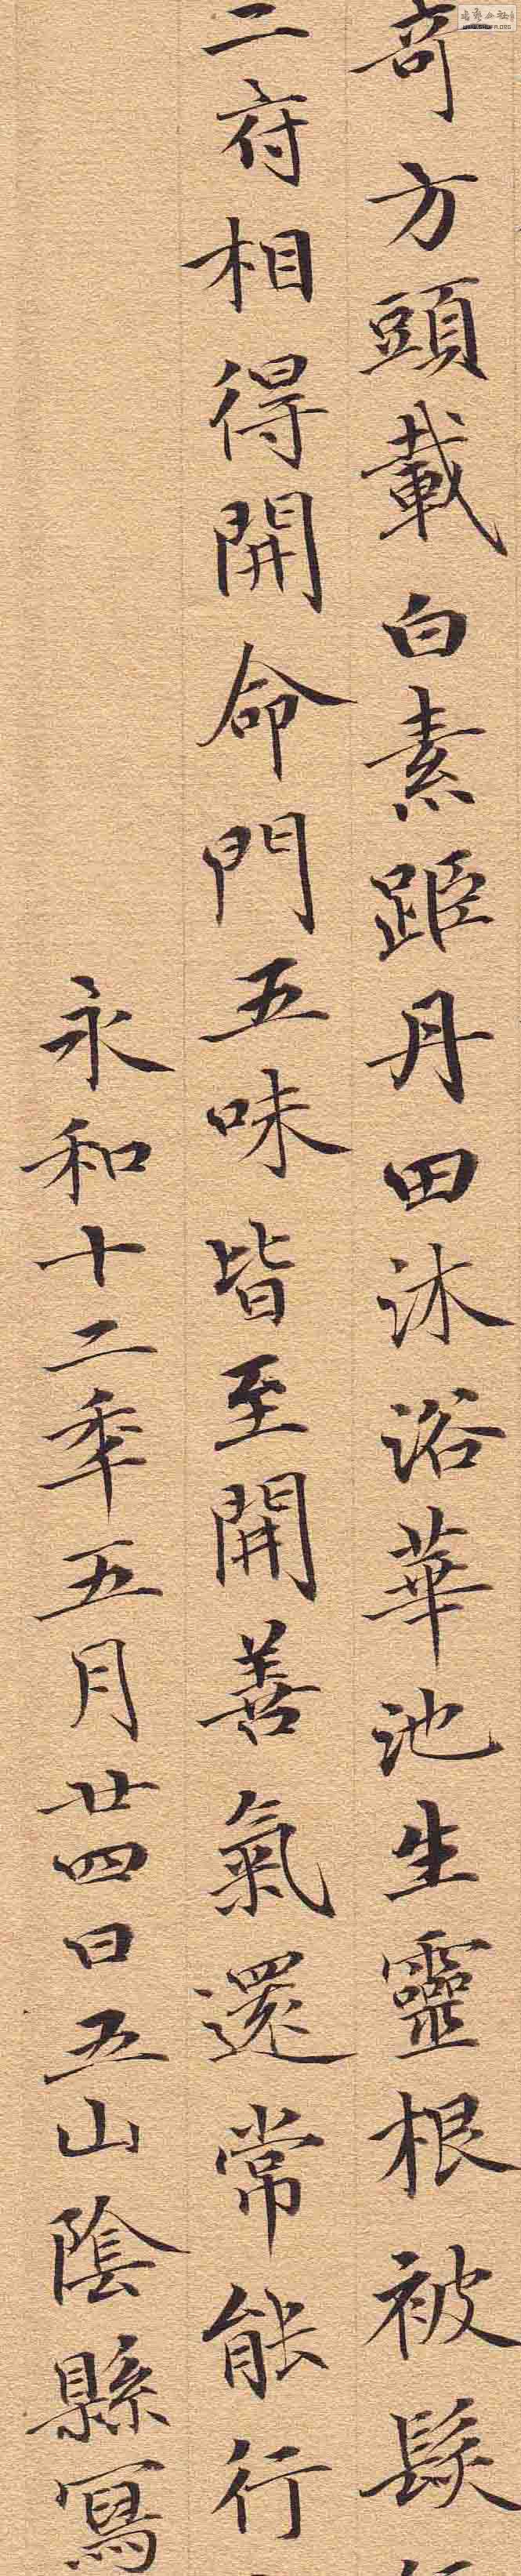 奇方頭載白素距丹田沐浴華池生靈根被髮
二府相得開命門五味皆至開善氣還常能行
永和十二年五月廿四日五山陰縣寫